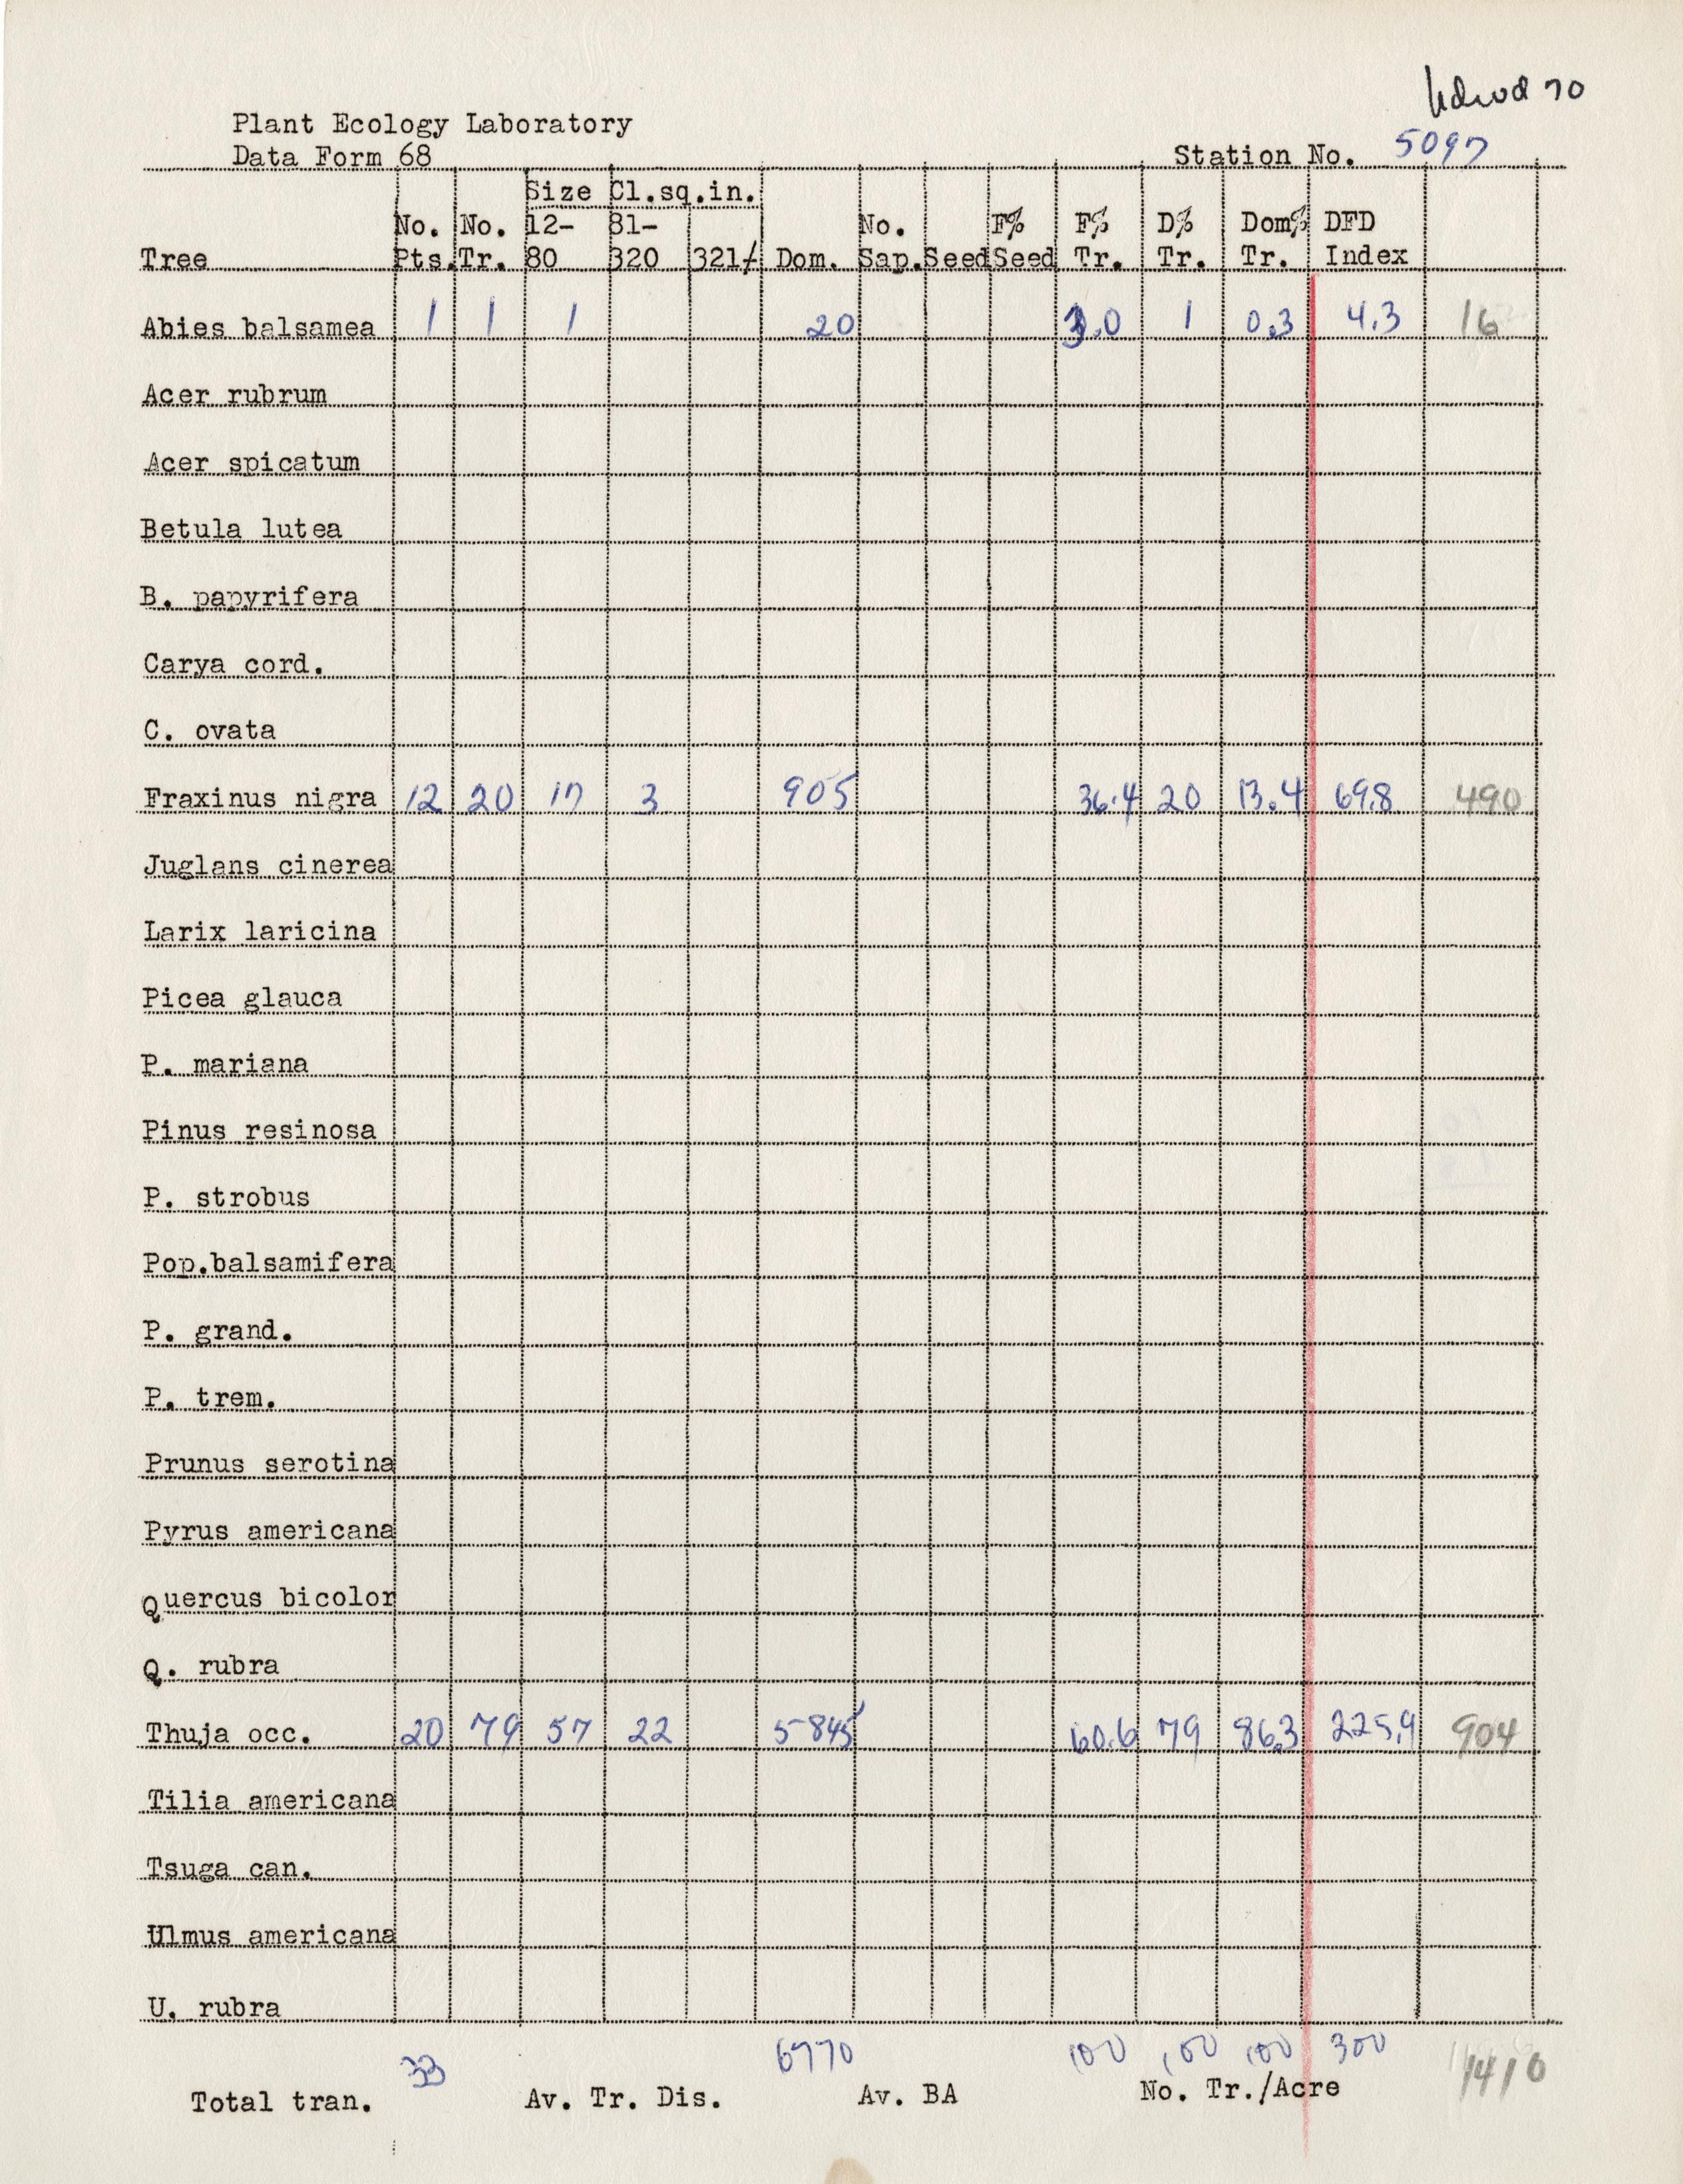 hdwd 70
Plant Ecology Laboratory
Data Form 68
Station No. 5097
Size Cl.sq.in.
No. No. 12- 81- No. F% F% D% Dom% DFD
Tree Pts. Tr. 80 320 321/ Dom. Sap. Seed Seed Tr. Tr. Tr. Index
Abies balsamea 1 1 1 20 3.0 1 0.3 4.3 16
Acer rubrum
Acer spicatum
Betula lutea
B. papyrifera
Carya cord.
C. ovata
Fraxinus nigra 12 20 17 3 905 36.4 20 13.4 69.8 490
Juglans cinerea
Larix laricina
Picea glauca
P. mariana
Pinus resinosa
P. strobus
Pop.balsamifera
P. grand.
P. trem.
Prunus serotina
Pyrus americana
Quercus bicolor
Q. rubra
Thuja occ. 20 79 57 22 5845 60.6 79 86.3 225.9 904
Tilia americana
Tsuga can.
Ulmus americana
U. rubra
33 6770 100 100 100 300 1410
Total tran. Av. Tr. Dis. Av. BA No. Tr./Acre